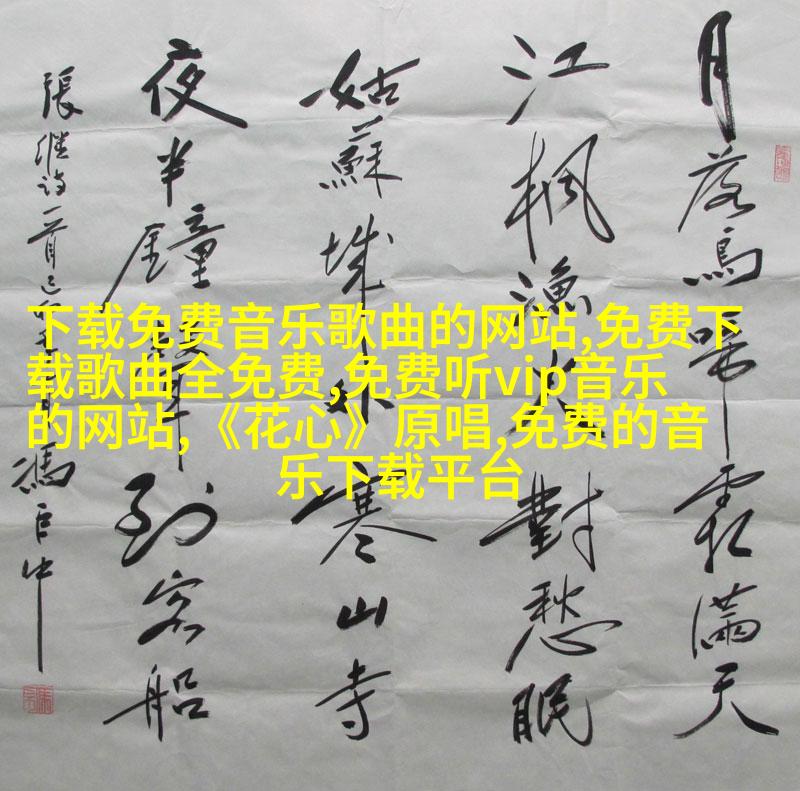 月落烏啼霜滿天
江楓漁火對愁眠
姑蘇城外寒山寺
夜半鐘到客船
張継詩一首己
馮巨中
下载免费音乐歌曲的网站,免费下
载歌曲全免费,免费听vip音乐
的网站,《花心》原唱,免费的音
乐下载平台